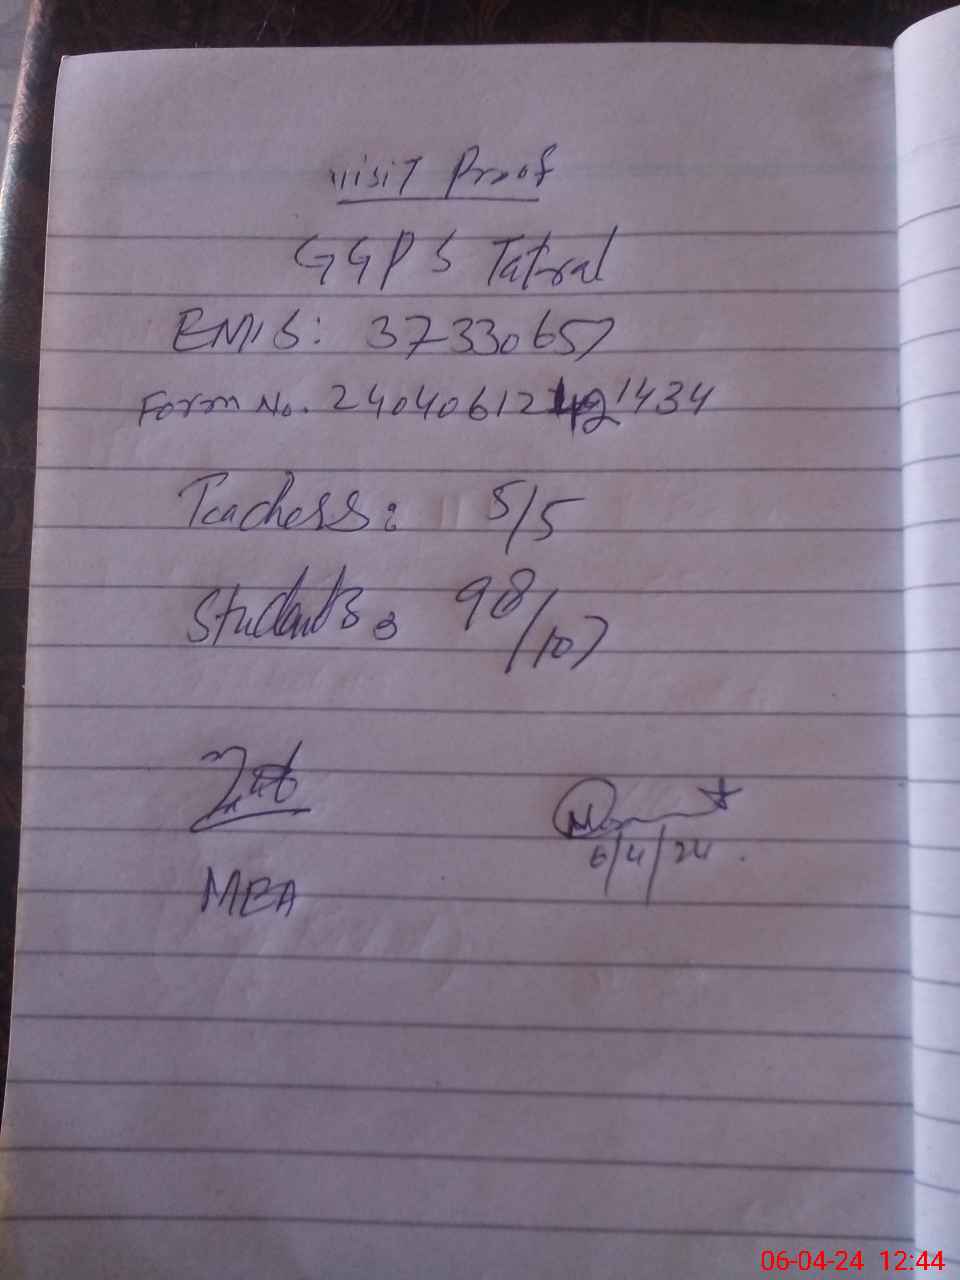 visit Proof
GGPS Tatral
EMIS: 37330657
Form No. 24040612 1434
Teachers: 5/5
Students: 98/107
MEA
6/4/24
06-04-24 12:44